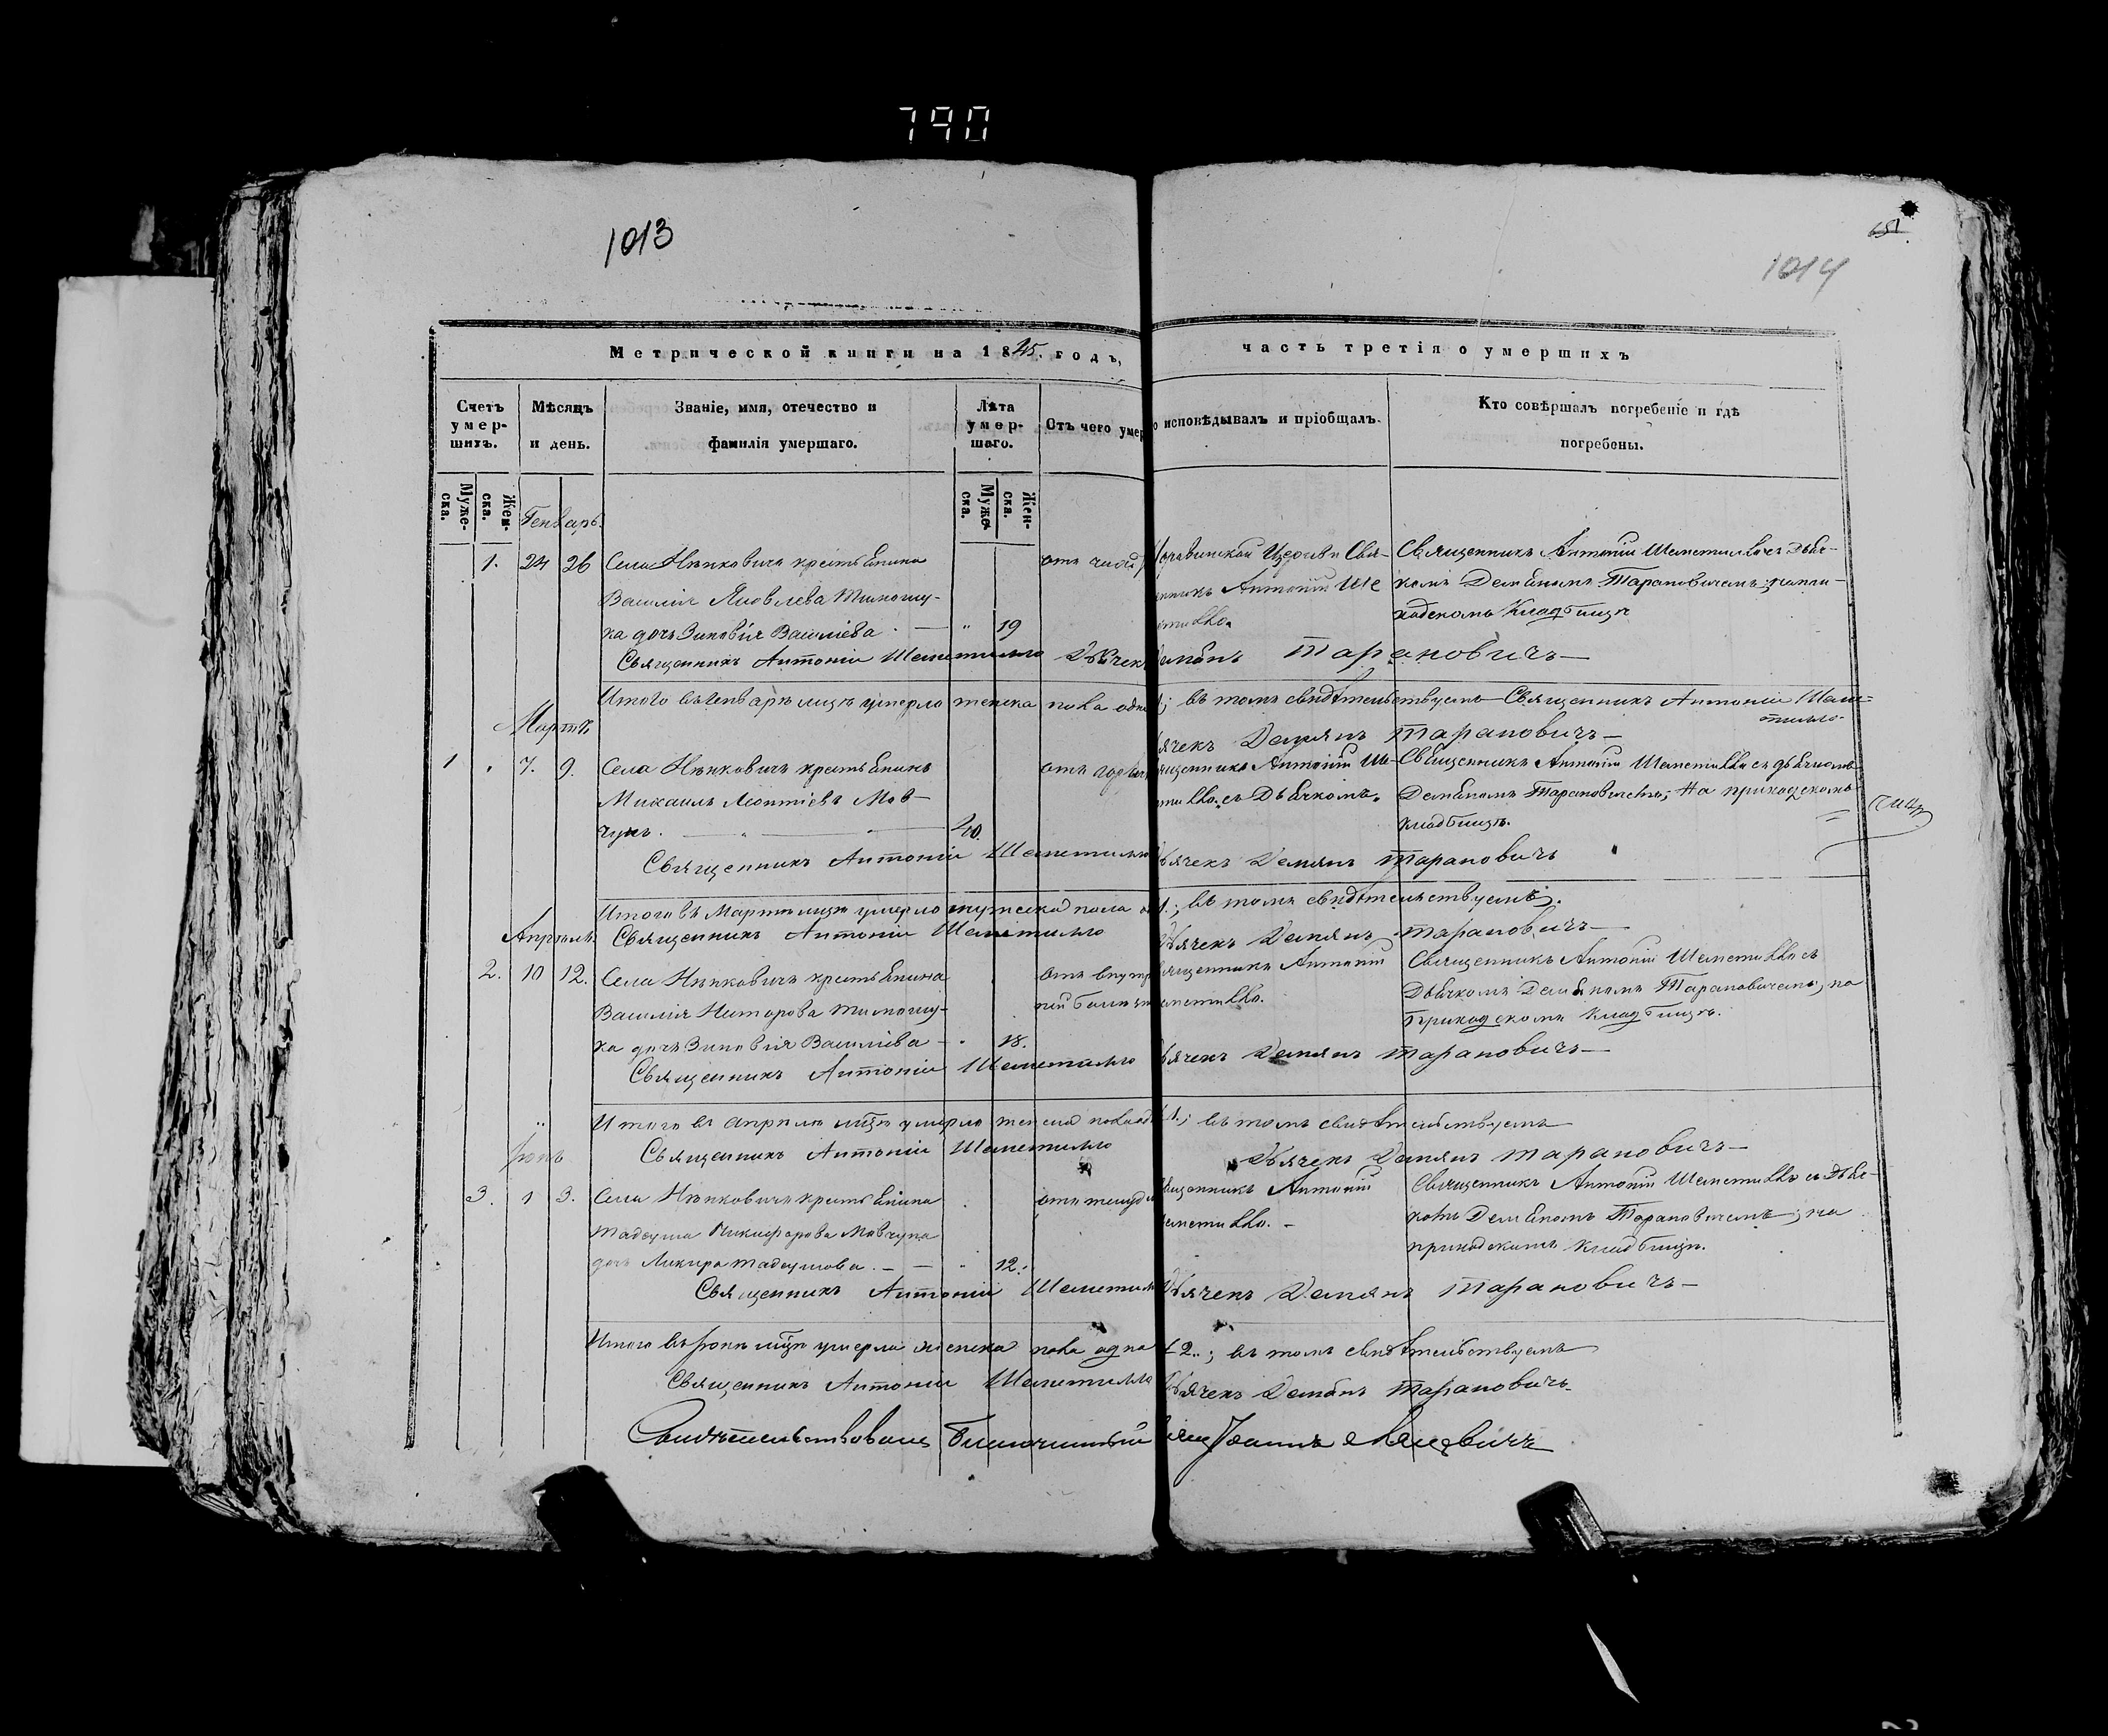 790
1013
651
1014
Метрической книги на 1845. годъ, часть третія о умершихъ
Счетъ умер-шихъ.
Мѣсяцъ и день.
Званіе, имя, отечество и фамилія умершаго.
Лѣта умер-шаго.
Отъ чего умер
о исповѣдывалъ и пріобщалъ.
Кто совѣршалъ погребеніе и гдѣ погребены.
Муже-ска.
Жен-ска.
Муже-ска.
Жен-ска.
Генварь.
1. 24 26 Села Нѣнковичъ крестьянина
Василія Яковлева Тимошу-
ка дочь Зиновія Василіева — " 19
церкви Свя-
Антоній Ше
Священникъ Антоній Шеметилло съ Дьяч-
комъ Демьяномъ Тарановичемъ; на при-
ходскомъ Кладбищѣ
Священникъ Антоній Шеметилло Дьячекъ Демьянъ Тарановичъ—
Итого въ Генварѣ мцѣ умерло женска пола одна 1; въ томъ свидѣтельствуемъ Священникъ Антоній Шеме-
тилло
Дьячекъ Демянъ Тарановичъ—
Мартъ
1 " 7. 9. Села Нѣнковичъ крестьянинъ
Михаилъ Леонтіевъ Мов-
чунъ. — " — 40.
отъ горячк
ященникъ Антоній Ше-
тилло съ Дьячкомъ.
Священникъ Антоній Шеметилло съ дьячкомъ
Демьяномъ Тарановичемъ; На приходскомъ
кладбищѣ.
Священникъ Антоній Шеметилло Дьячекъ Демянъ Тарановичъ
Итого въ Мартѣ мцѣ умерло мужеска пола о 1.; въ томъ свидѣтельствуемъ.
Священникъ Антоній Шеметилло Дьячекъ Демянъ Тарановичъ—
Апрѣль
2. 10 12. Села Нѣнковичъ крестьянина
Василія Тимошу-
ка дочь Зиновія Василіева — " 18.
отъ внутр
ней болезн
ященникъ Антоній
еметилло.
Священникъ Антоній Шеметилло съ
Дьячкомъ Демьяномъ Тарановичемъ; на
Приходскомъ Кладбищѣ.
Священникъ Антоній Шеметилло Дьячекъ Демянъ Тарановичъ—
Итого въ Апрѣлѣ мцѣ умерло женска пола од 1.; въ томъ свидѣтельствуемъ
Священникъ Антоній Шеметилло Дьячекъ Демянъ Тарановичъ—
Іюнь
3. 1 3. Села Нѣнковичъ крестьянина
Тадеуша Никифорова Мовчуна
дочь Тадеушова. — — " 12.
вященникъ Антоній
еметилло. —
Священникъ Антоній Шеметилло съ Дьяч-
комъ Демьяномъ Тарановичемъ; на
приходскомъ кладбищѣ.
Священникъ Антоній Шеметилло Дьячекъ Демянъ Тарановичъ—
Итого въ Іюнѣ мцѣ умерла женска пола одна; въ томъ свидѣтельствуемъ
Священникъ Антоній Шеметилло Дьячекъ Демьянъ Тарановичъ.
Свидѣтельствовалъ Благочинный Іоаннъ